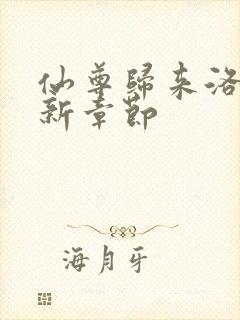 仙尊归来洛
新章节
海月牙